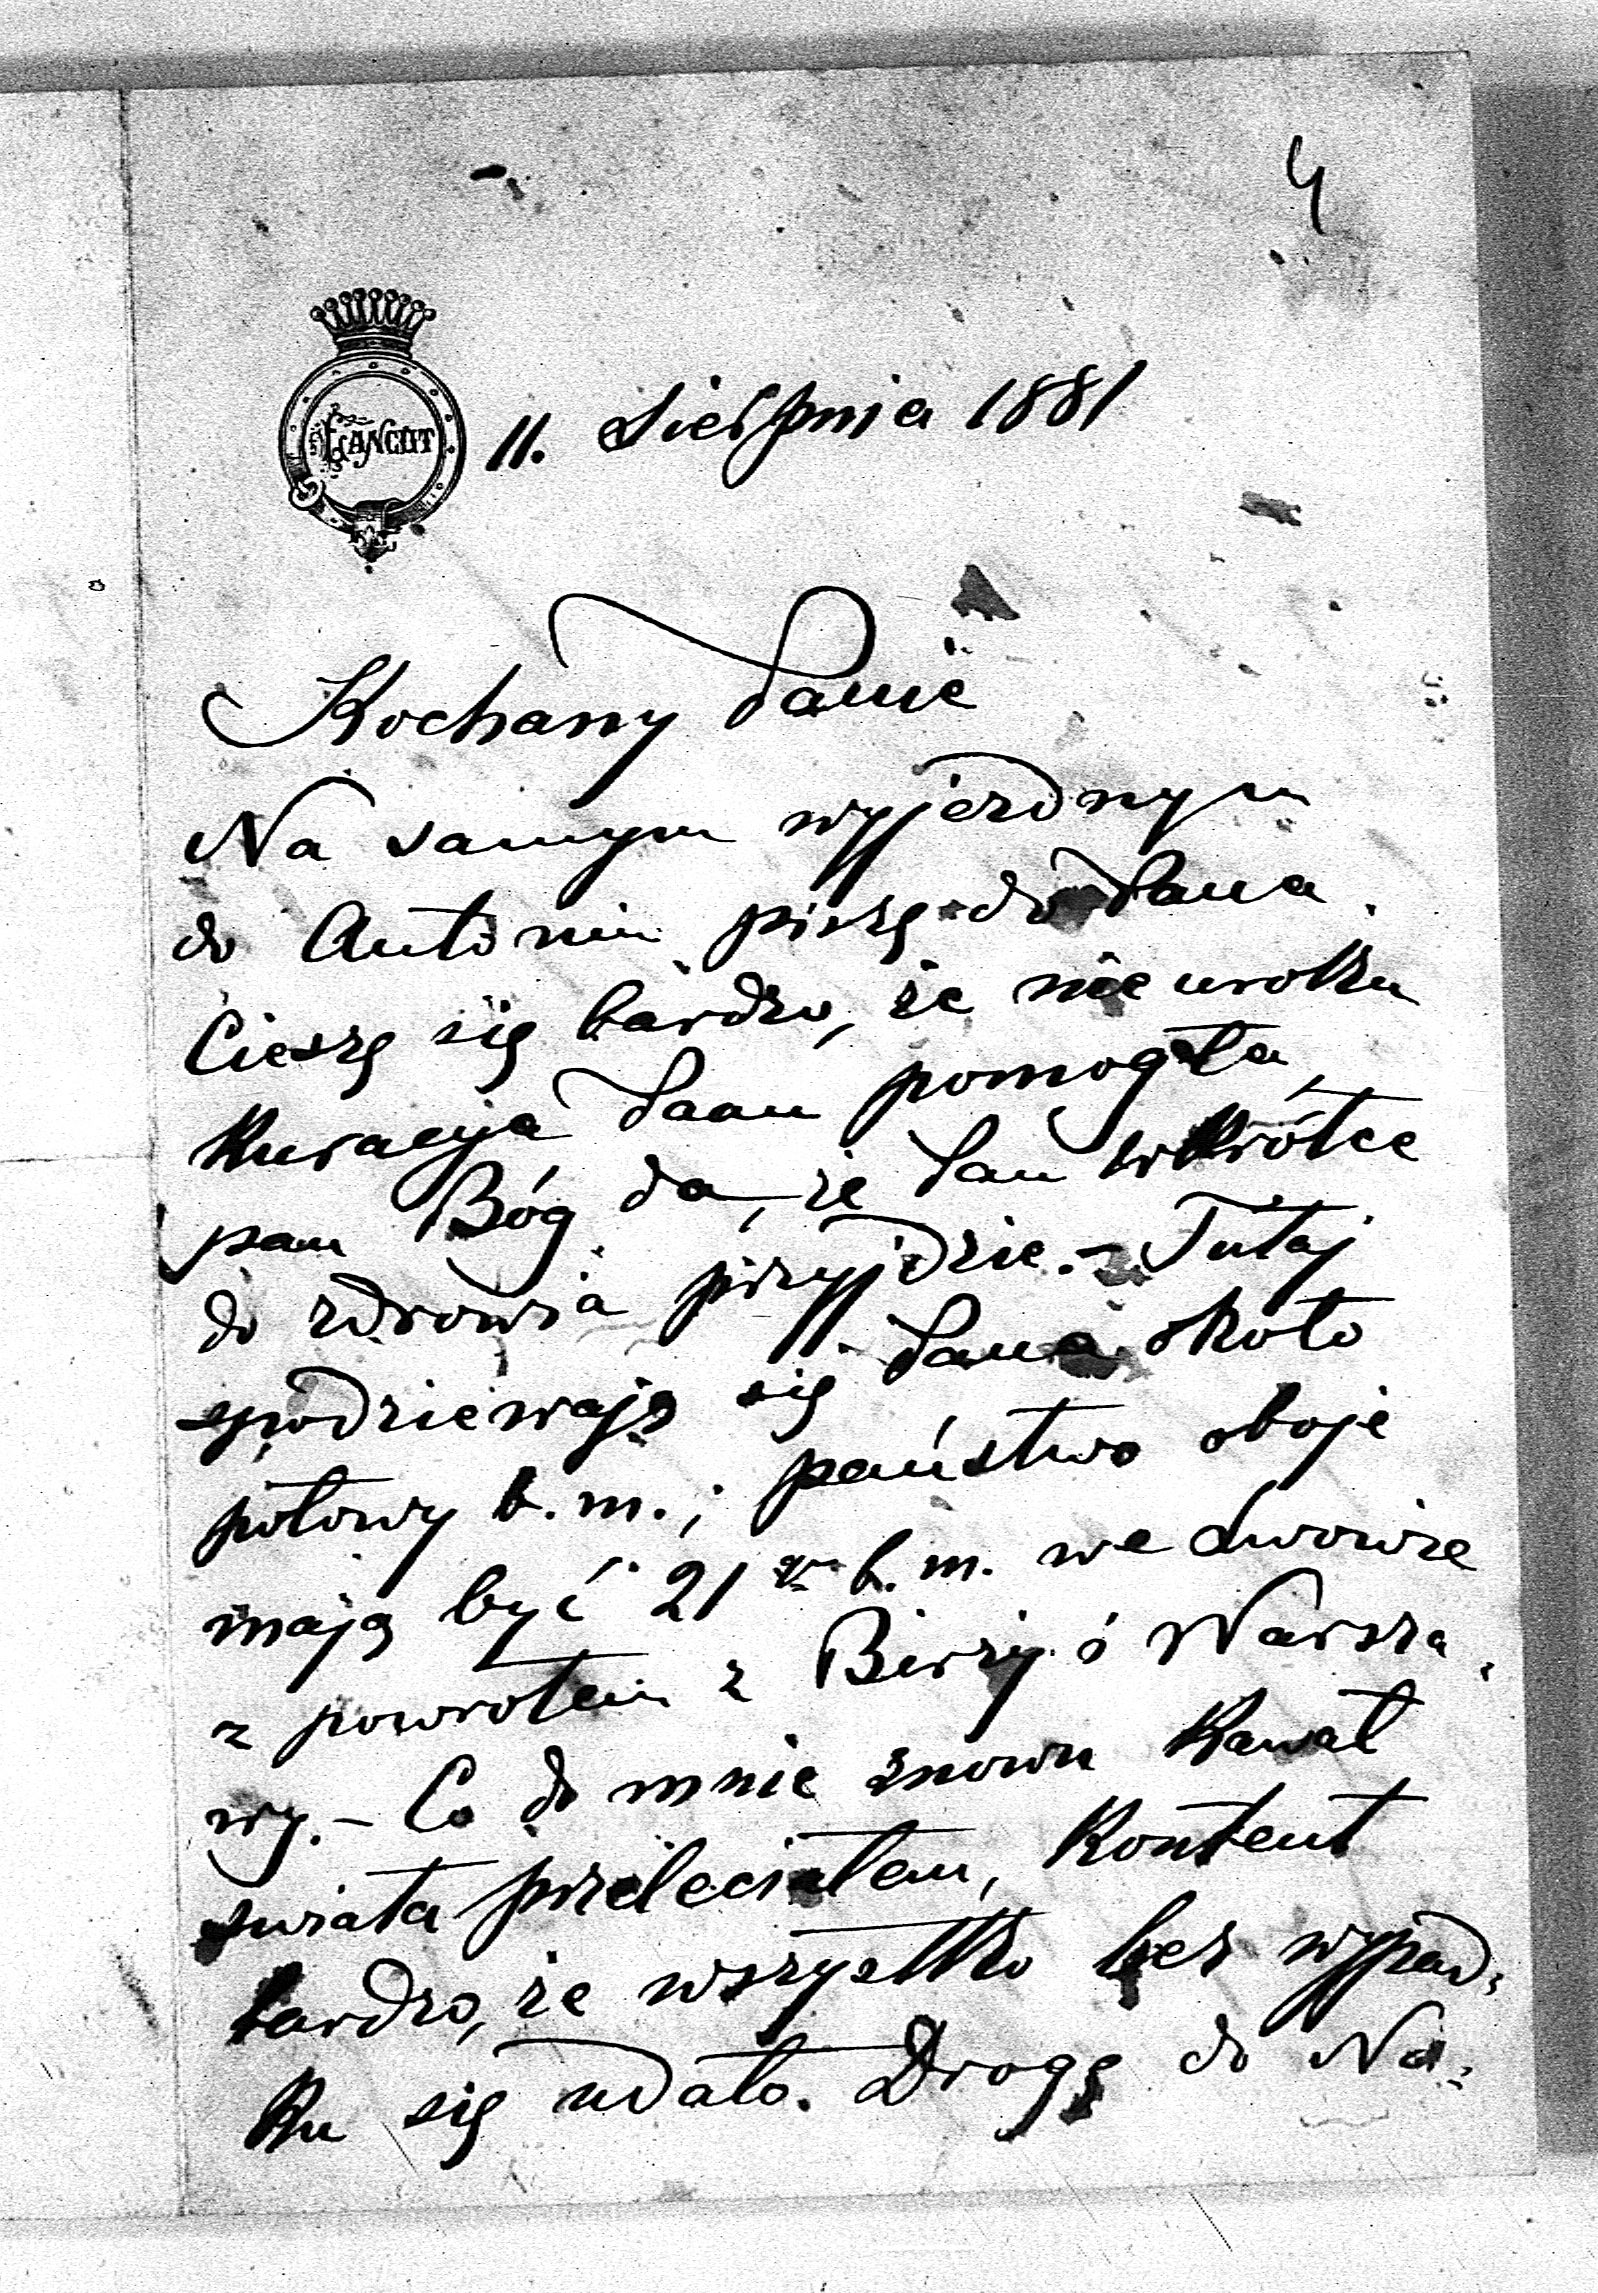 4
ŁAŃCUT
11. Sierpnia 1881
Kochany Panie
Na samym wyjezdnym
do Antonin piszę do Pana.
Cieszę się bardzo, że nieuroku
kuracyja Panu pomogła,
pan Bóg da, że Pan wkrótce
do zdrowia przyjdzie. – Tutaj
spodziewają się Pana około
połowy b. m.; państwo oboje
mają być 21go b. m. we Lwowie
z powrotem z Birży i Warsza-
wy. – Co do mnie znowu kawał
świata przeleciałem, kontent
bardzo, że wszystko bez wypad-
ku się udało. Drogę do Na-